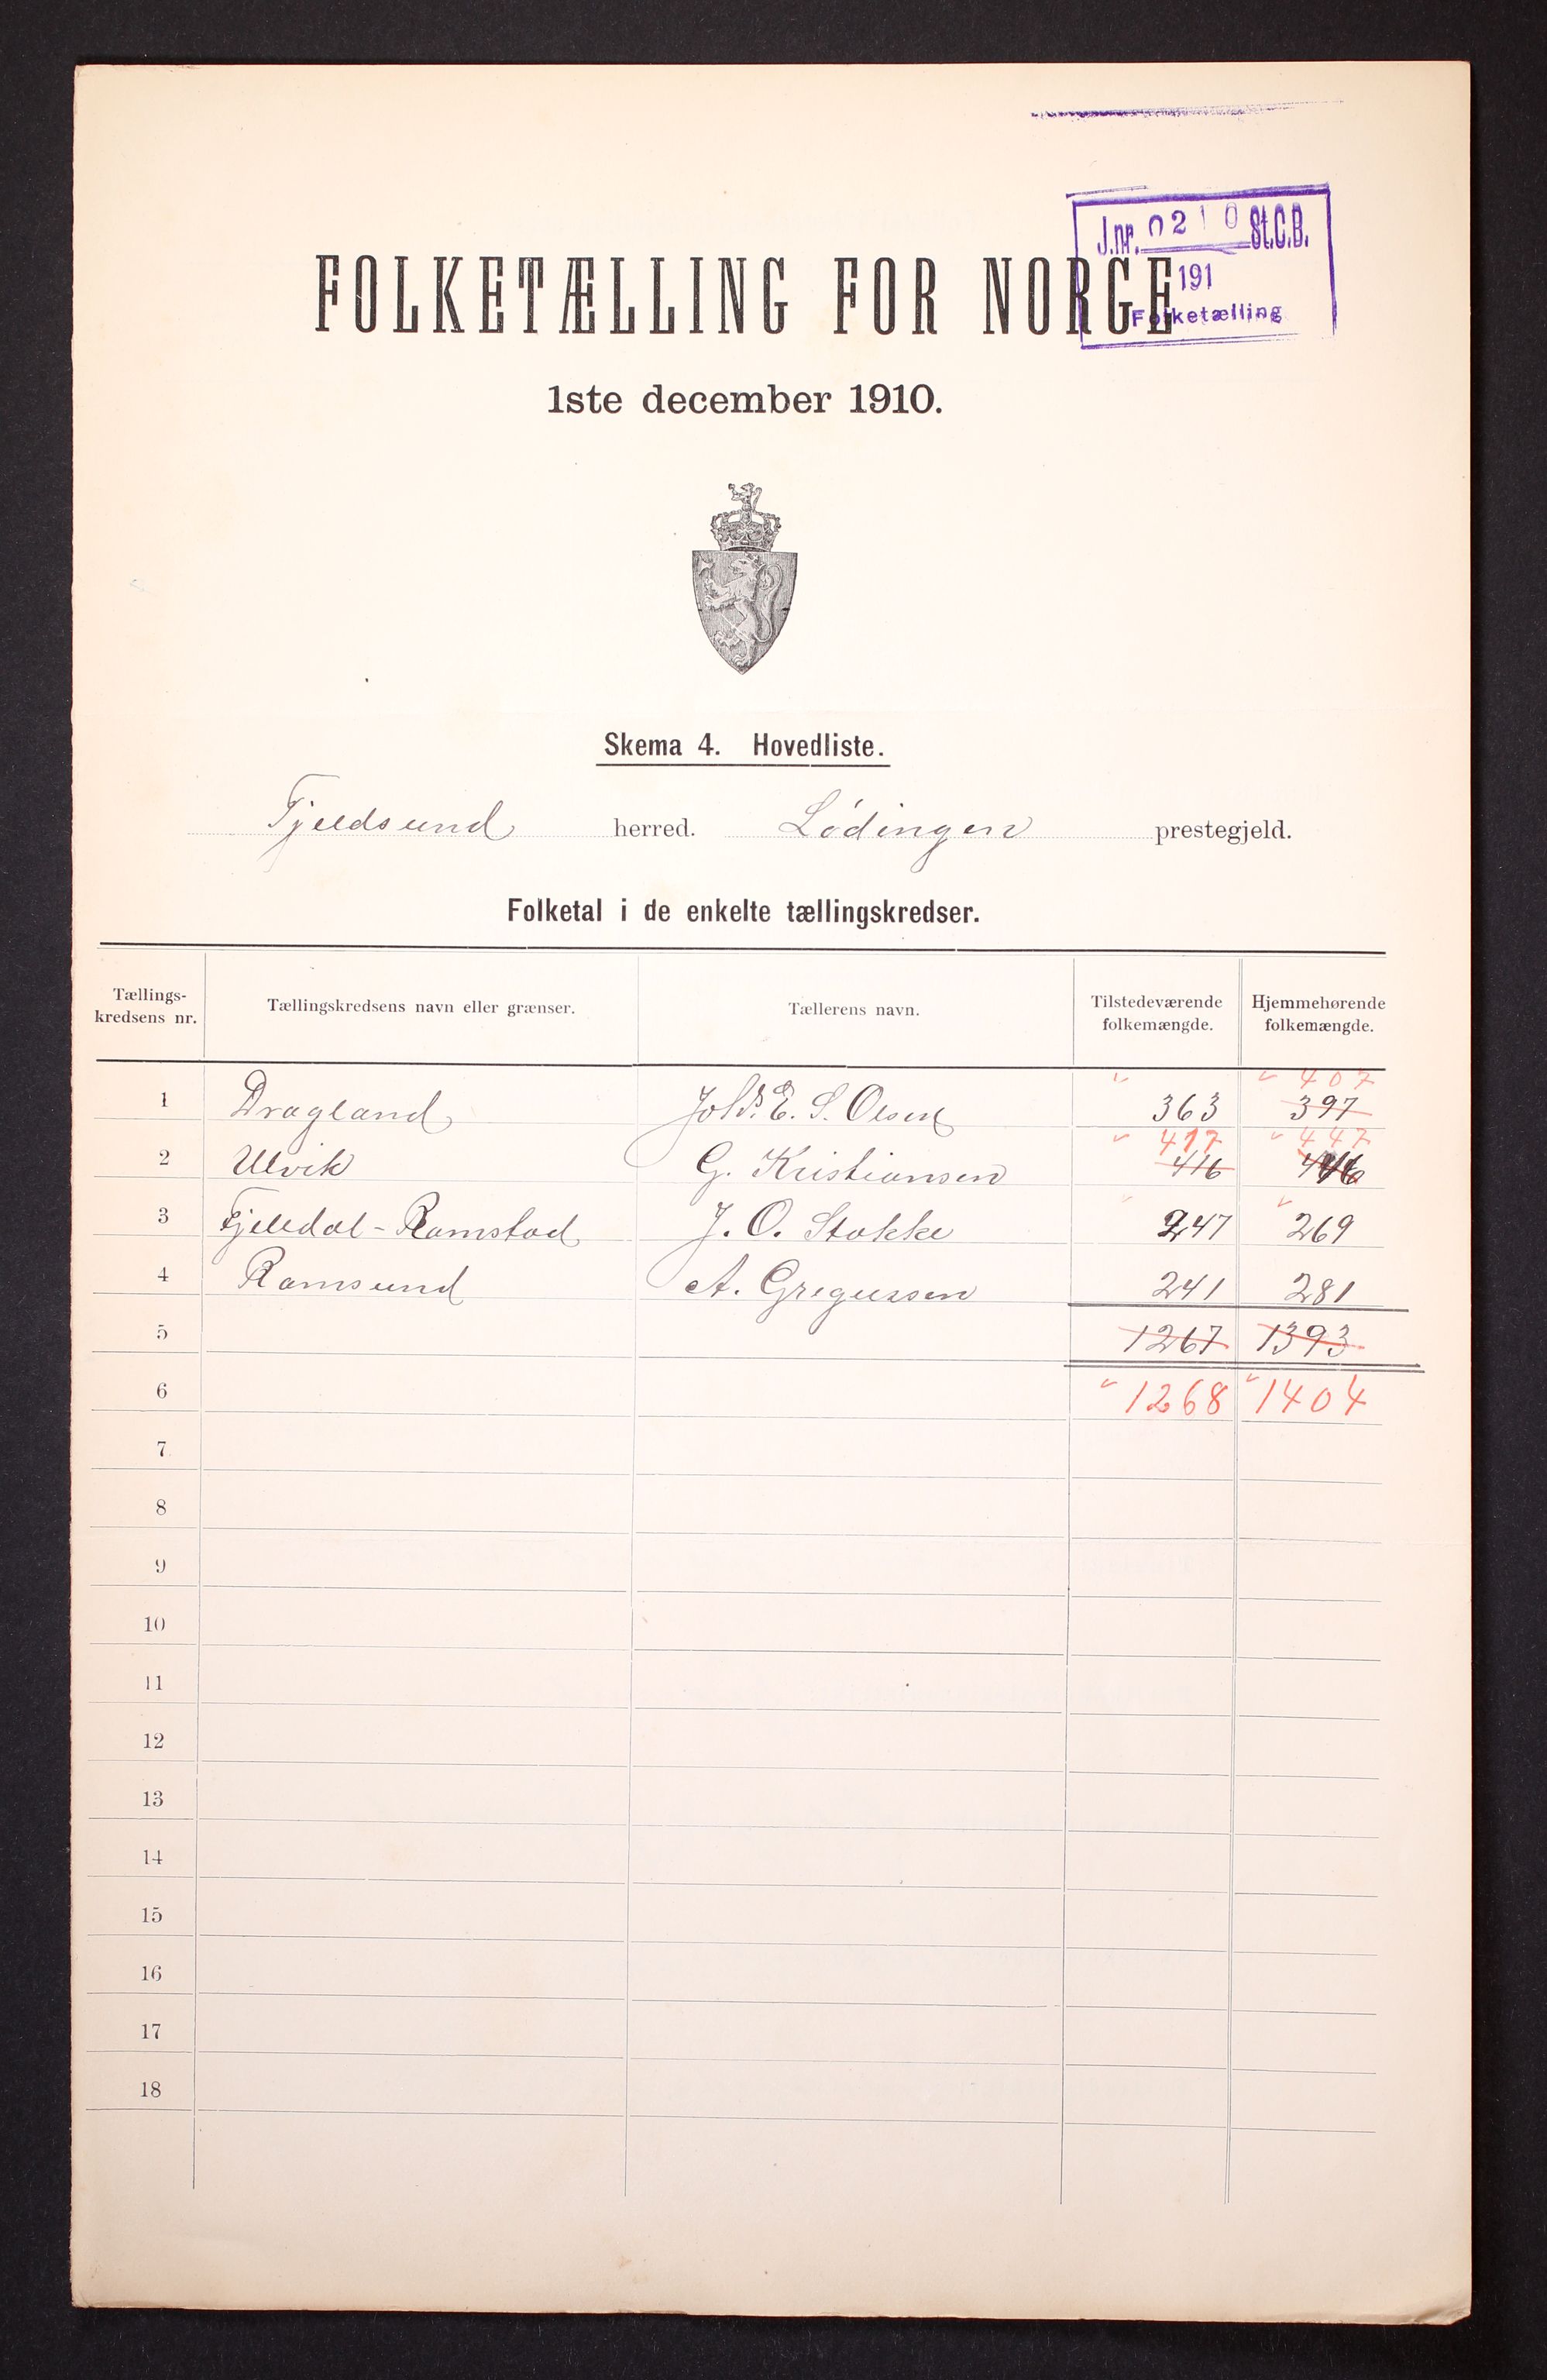 J.nr. 0210 St.C.B.
191
Folketælling
FOLKETÆLLING FOR NORGE
1ste december 1910.
Skema 4. Hovedliste.
Fjeldsund herred. Lödingen prestegjeld.
Folketal i de enkelte tællingskredser.
Tællings-kredsens nr. Tællingskredsens navn eller grænser. Tællerens navn. Tilstedeværende folkemængde. Hjemmehørende folkemængde.
407
1 Dragland E. S. Olsen 363 397
417 447
2 Ulvik G. Kristiansen 416 446
3 Fjelldal - Ramstad J. O. Stokke 247 269
4 Ramsund A. Gregussen 241 281
5 1267 1393
6 1268 1404
7
8
9
10
11
12
13
14
15
16
17
18